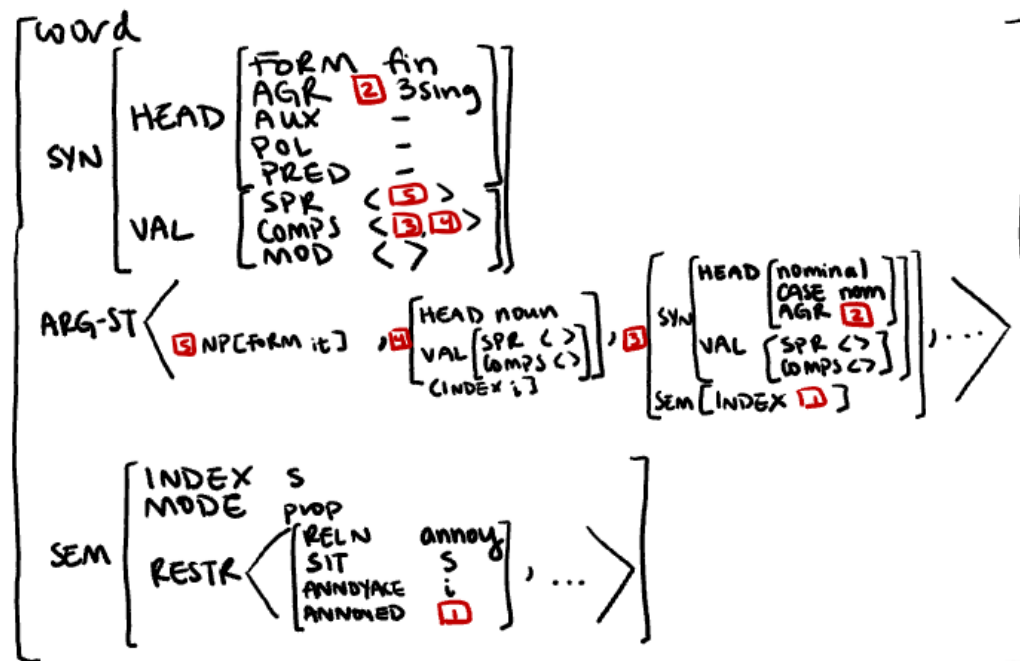 word
SYN
HEAD
FORM fin
AGR 2 3sing
AUX -
POL -
PRED -
VAL
SPR < 5 >
COMPS < 3, 4 >
MOD < >
ARG-ST <
5 NP[FORM it] ,
4
HEAD noun
VAL
SPR < >
COMPS < >
[INDEX i]
,
3
SYN
HEAD
nominal
CASE nom
AGR 2
VAL
SPR < >
COMPS < >
SEM [INDEX 1]
, ... >
SEM
INDEX s
MODE prop
RESTR <
RELN annoy
SIT s
i
ANNOYED 1
, ... >